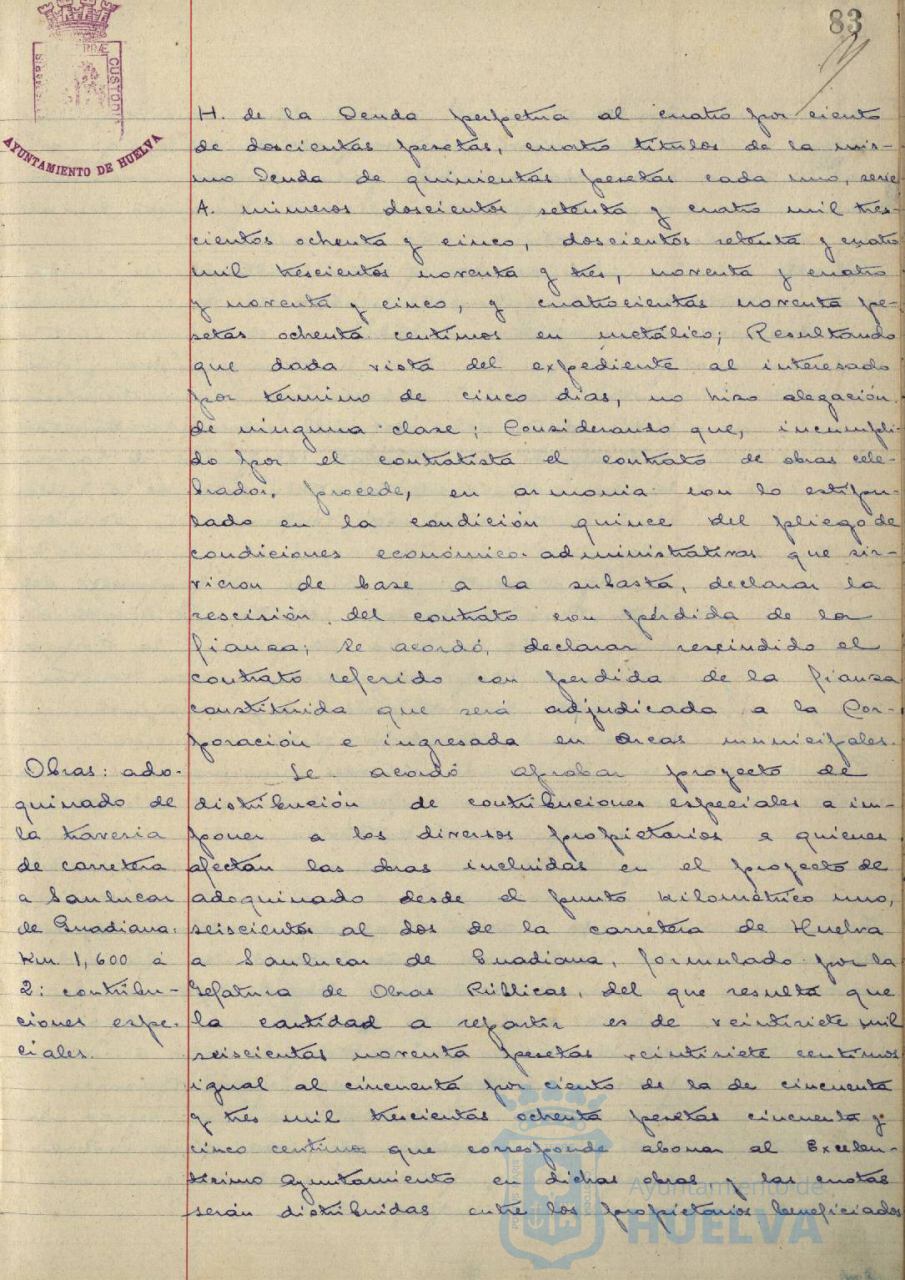 83
PORTUS MARIS ET TERRÆ CUSTODIA
AYUNTAMIENTO DE HUELVA
H. de la Deuda perpetua al cuatro por ciento
de doscientas pesetas, cuatro títulos de la mis-
mo Deuda de quinientas pesetas cada uno, serie
A. números doscientos setenta y cuatro mil tres-
cientos ochenta y cinco, doscientos setenta y cuatro
mil trescientos noventa y tres, noventa y cuatro
y noventa y cinco, y cuatrocientas noventa pe-
setas ochenta centimos en metálico; Resultando
que dada vista del expediente al interesado
por termino de cinco dias, no hizo alegación
de ninguna clase; Considerando que, incumpli-
do por el contratista el contrato de obras cele-
brador, procede, en armonia con lo estipu-
lado en la condición quince del pliego de
condiciones económico-administrativas que sir-
vieron de base a la subasta, declarar la
rescisión del contrato con pérdida de la
fianza; Se acordó, declarar rescindido el
contrato referido con perdida de la fianza
constituida que será adjudicada a la Cor-
poración e ingresada en arcas municipales.
Obras: ado-
quinado de
la travesia
de carretera
a Sanlucar
de Guadiana:
Km. 1,600 á
2: contribu-
ciones espe-
ciales.
Se acordó aprobar proyecto de
distribución de contribuciones especiales a im-
poner a los diversos propietarios a quienes
afectan las obras incluidas en el proyecto de
adoquinado desde el punto kilométrico uno,
seiscientos al dos de la carretera de Huelva
a Sanlucar de Guadiana, formulado por la
Jefatura de Obras Públicas, del que resulta que
la cantidad a repartir es de veintisiete mil
seiscientas noventa pesetas veintisiete centimos
igual al cincuenta por ciento de la de cincuenta
y tres mil trescientas ochenta pesetas cincuenta y
cinco centimos que corresponde abonar al Excelen-
tisimo Ayuntamiento en dichas obras, y las cuotas
serán distribuidas entre los propietarios beneficiados
Ayuntamiento de
HUELVA